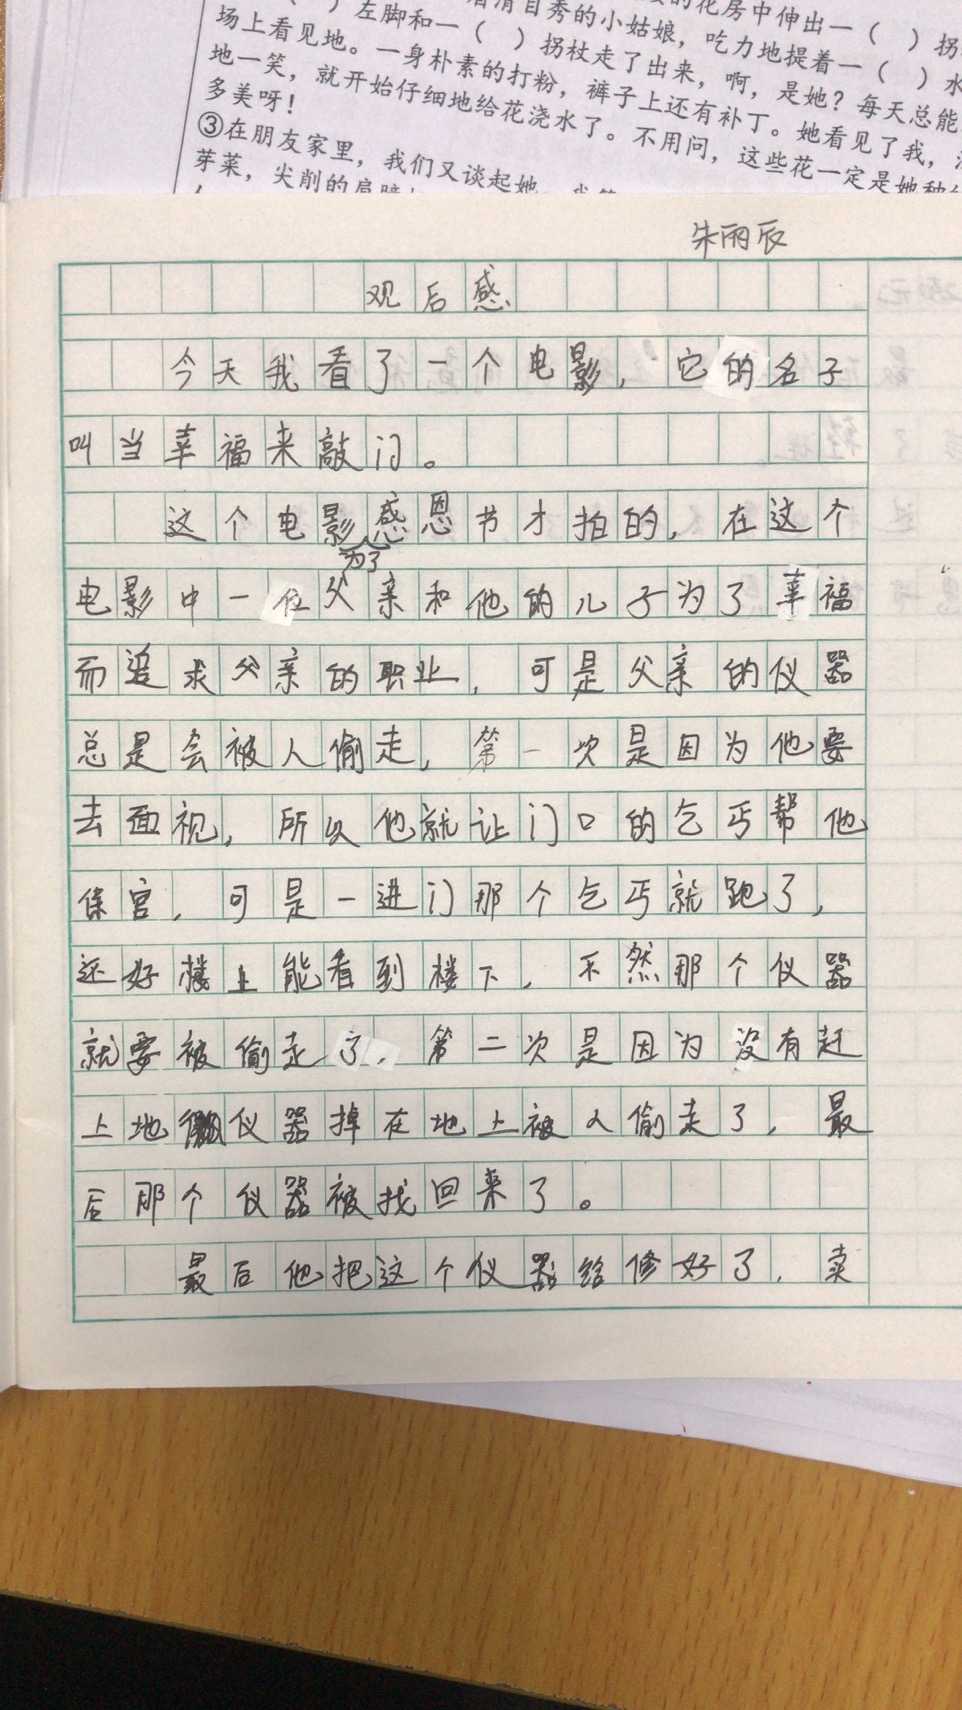 左脚和一（ ）拐杖走了出来，啊，是她？每天总能
清目秀的小姑娘，吃力地提着一（ ）水
的花房中伸出一（ ）拐
场上看见地。一身朴素的打粉，裤子上还有补丁。她看见了我，
地一笑，就开始仔细地给花浇水了。不用问，这些花一定是她种
多美呀！
③在朋友家里，我们又谈起她
芽菜，尖削的肩膀
朱雨辰
观后感
今天我看了一个电影，它的名子
叫当幸福来敲门。
这个电影为了感恩节才拍的，在这个
电影中一位父亲和他的儿子为了幸福
而追求父亲的职业，可是父亲的仪器
总是会被人偷走，第一次是因为他要
去面视，所以他就让门口的乞丐帮他
保官，可是一进门那个乞丐就跑了，
还好楼上能看到楼下，不然那个仪器
就要被偷走了，第二次是因为没有赶
上地仪器掉在地上被人偷走了，最
后那个仪器被找回来了。
最后他把这个仪器给修好了，卖